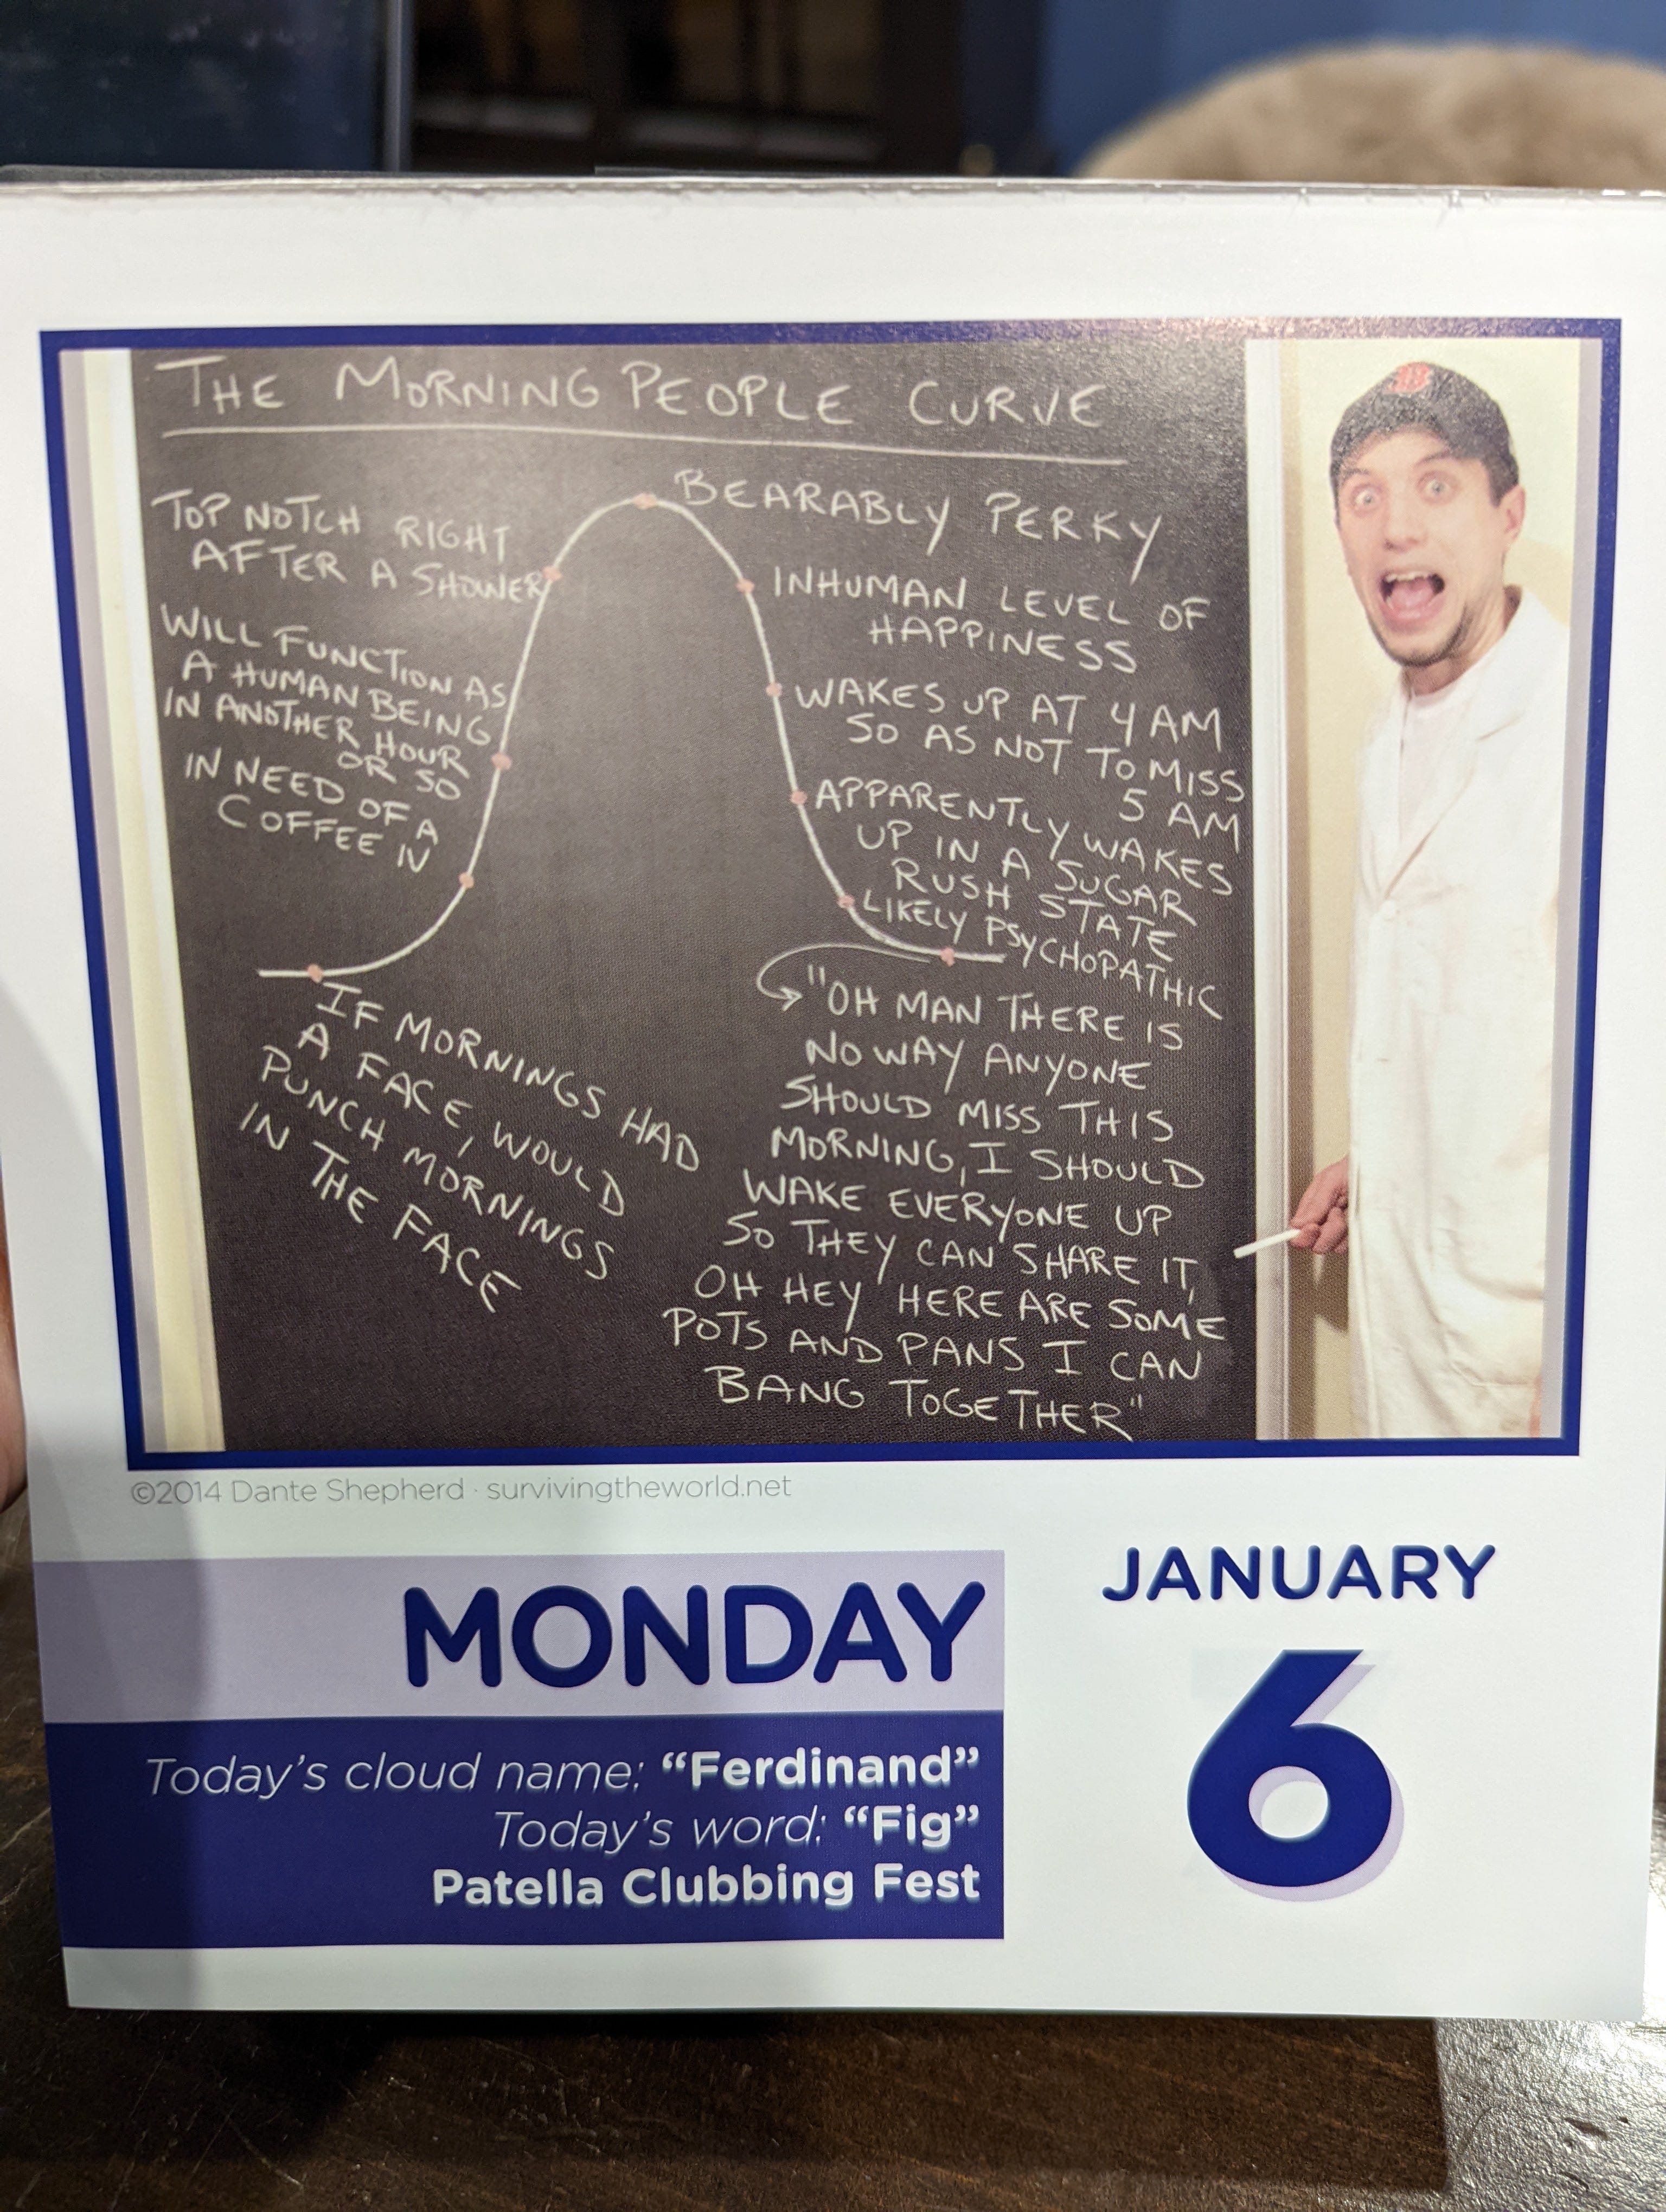 THE MORNING PEOPLE CURVE
TOP NOTCH RIGHT
AFTER A SHOWER
WILL FUNCTION AS
A HUMAN BEING
IN ANOTHER HOUR
OR SO
IN NEED OF A
COFFEE IV
IF MORNINGS HAD
A FACE, WOULD
PUNCH MORNINGS
IN THE FACE
BEARABLY PERKY
INHUMAN LEVEL OF
HAPPINESS
WAKES UP AT 4 AM
SO AS NOT TO MISS
5 AM
APPARENTLY WAKES
UP IN A SUGAR
RUSH STATE
LIKELY PSYCHOPATHIC
"OH MAN THERE IS
NO WAY ANYONE
SHOULD MISS THIS
MORNING, I SHOULD
WAKE EVERYONE UP
SO THEY CAN SHARE IT,
OH HEY HERE ARE SOME
POTS AND PANS I CAN
BANG TOGETHER"
B
©2014 Dante Shepherd · survivingtheworld.net
MONDAY
JANUARY
6
Today's cloud name: “Ferdinand”
Today's word: “Fig”
Patella Clubbing Fest